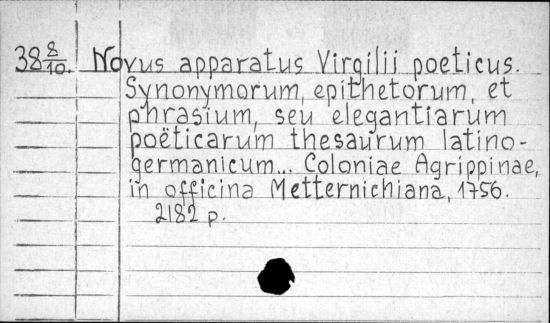 38 8/10. Novus apparatus Virgilii poeticus.
Synonymorum, epithetorum, et
phrasium, seu elegantiarum
poëticarum thesaurum latino-
germanicum... Coloniae Agrippinae,
in officina Metternichiana, 1756.
2182 p.